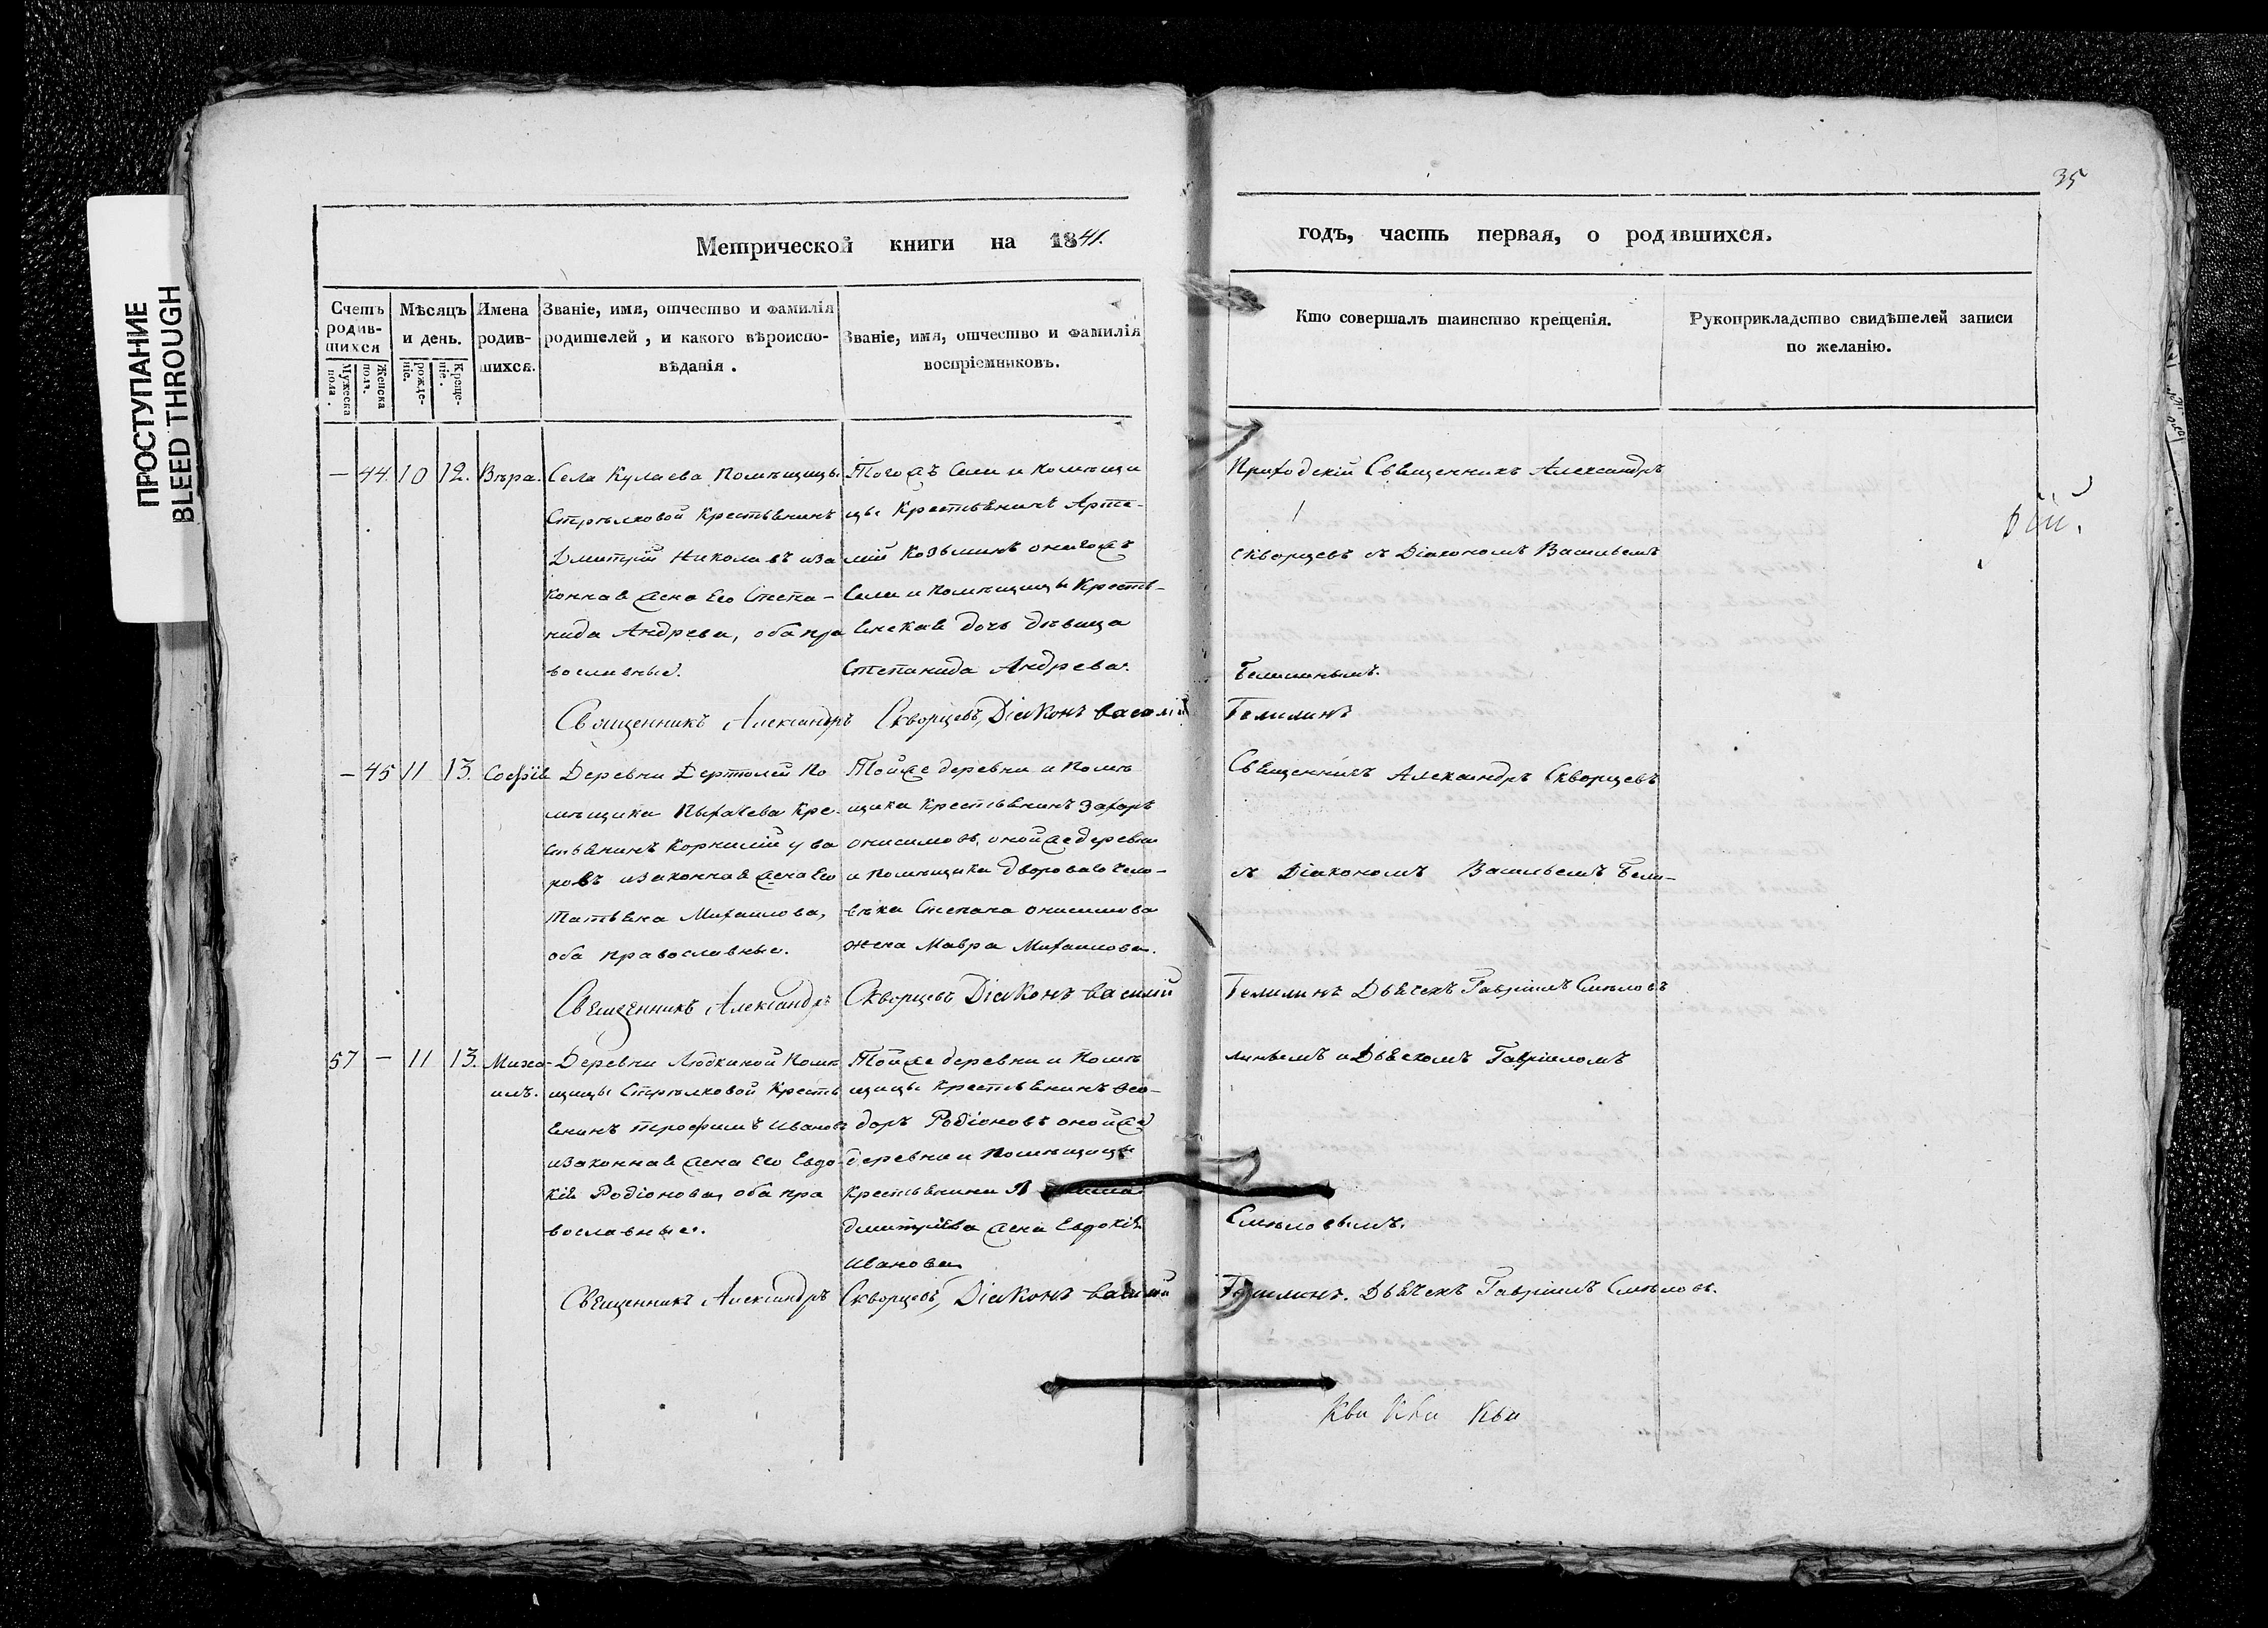 ПРОСТУПАНИЕ
BLEED THROUGH
35
Метрической книги на 1841.
годъ, часть первая, о родившихся.
Счетъ родив-шихся
Мужеска пола.
Женска пола.
Мѣсяцъ и день.
рожде-ніе.
Креще-ніе.
Имена родив-шихся.
Званіе, имя, отчество и фамилія
родителей, и какого вѣроиспо-
вѣданія.
Званіе, имя, отчество и фамилія
воспріемниковъ.
Кто совершалъ таинство крещенія.
Рукоприкладство свидѣтелей записи
по желанію.
— 44. 10 12. Вѣра.
Села Кулаева Помѣщицы
Стрѣлковой Крестьянинъ
Дмитрій Николаевъ иза
конная жена Его Степа-
нида Андреева, оба пра
вославные.
Тогожъ Села и помѣщи
цы Крестьянинъ Арте-
мій Козьминъ оногожъ
Села и помѣщицы Кресть-
янская дочь дѣвица
Степанида Андрева.
Приходскій Священникъ Александръ
Скворцевъ съ Діакономъ Васильемъ
Священникъ Александръ Скворцевъ, Діяконъ Василій
— 45 11 13. Софія
Деревни Дертолей По
мѣщика Пыхачева Кре-
стьянинъ Корнилій ува
ровъ изаконная жена Его
Татьяна Михаилова,
оба православные.
Тойже деревни и Помѣ
щика Крестьянинъ Захаръ
онисимовъ, онойже деревни
и Помѣщика двороваго чело-
вѣка Степана онисимова
жена Мавра Михаилова.
Священникъ Александръ Скворцевъ
съ Діакономъ Васильемъ
Священникъ Александръ Скворцевъ Діяконъ Василій
Дьячекъ Гавріилъ Смѣловъ
57 — 11 13. Миха-
илъ.
Деревни Людкиной Помѣ
щицы Стрѣлковой Кресть
янинъ Трофимъ Ивановъ
изаконная жена Его Евдо
кія Родіонова, оба пра
вославные.
Тойже деревни и Помѣ
щицы Крестьянинъ Ѳео-
доръ Родіоновъ онойже
деревни и Помѣщицы
Крестьянина
дмитріева жена Евдокія
Иванова
Дьячкомъ Гавріиломъ
Смѣловымъ.
Священникъ Александръ Скворцевъ, Діяконъ Василій
Дьячекъ Гавріилъ Смѣловъ.